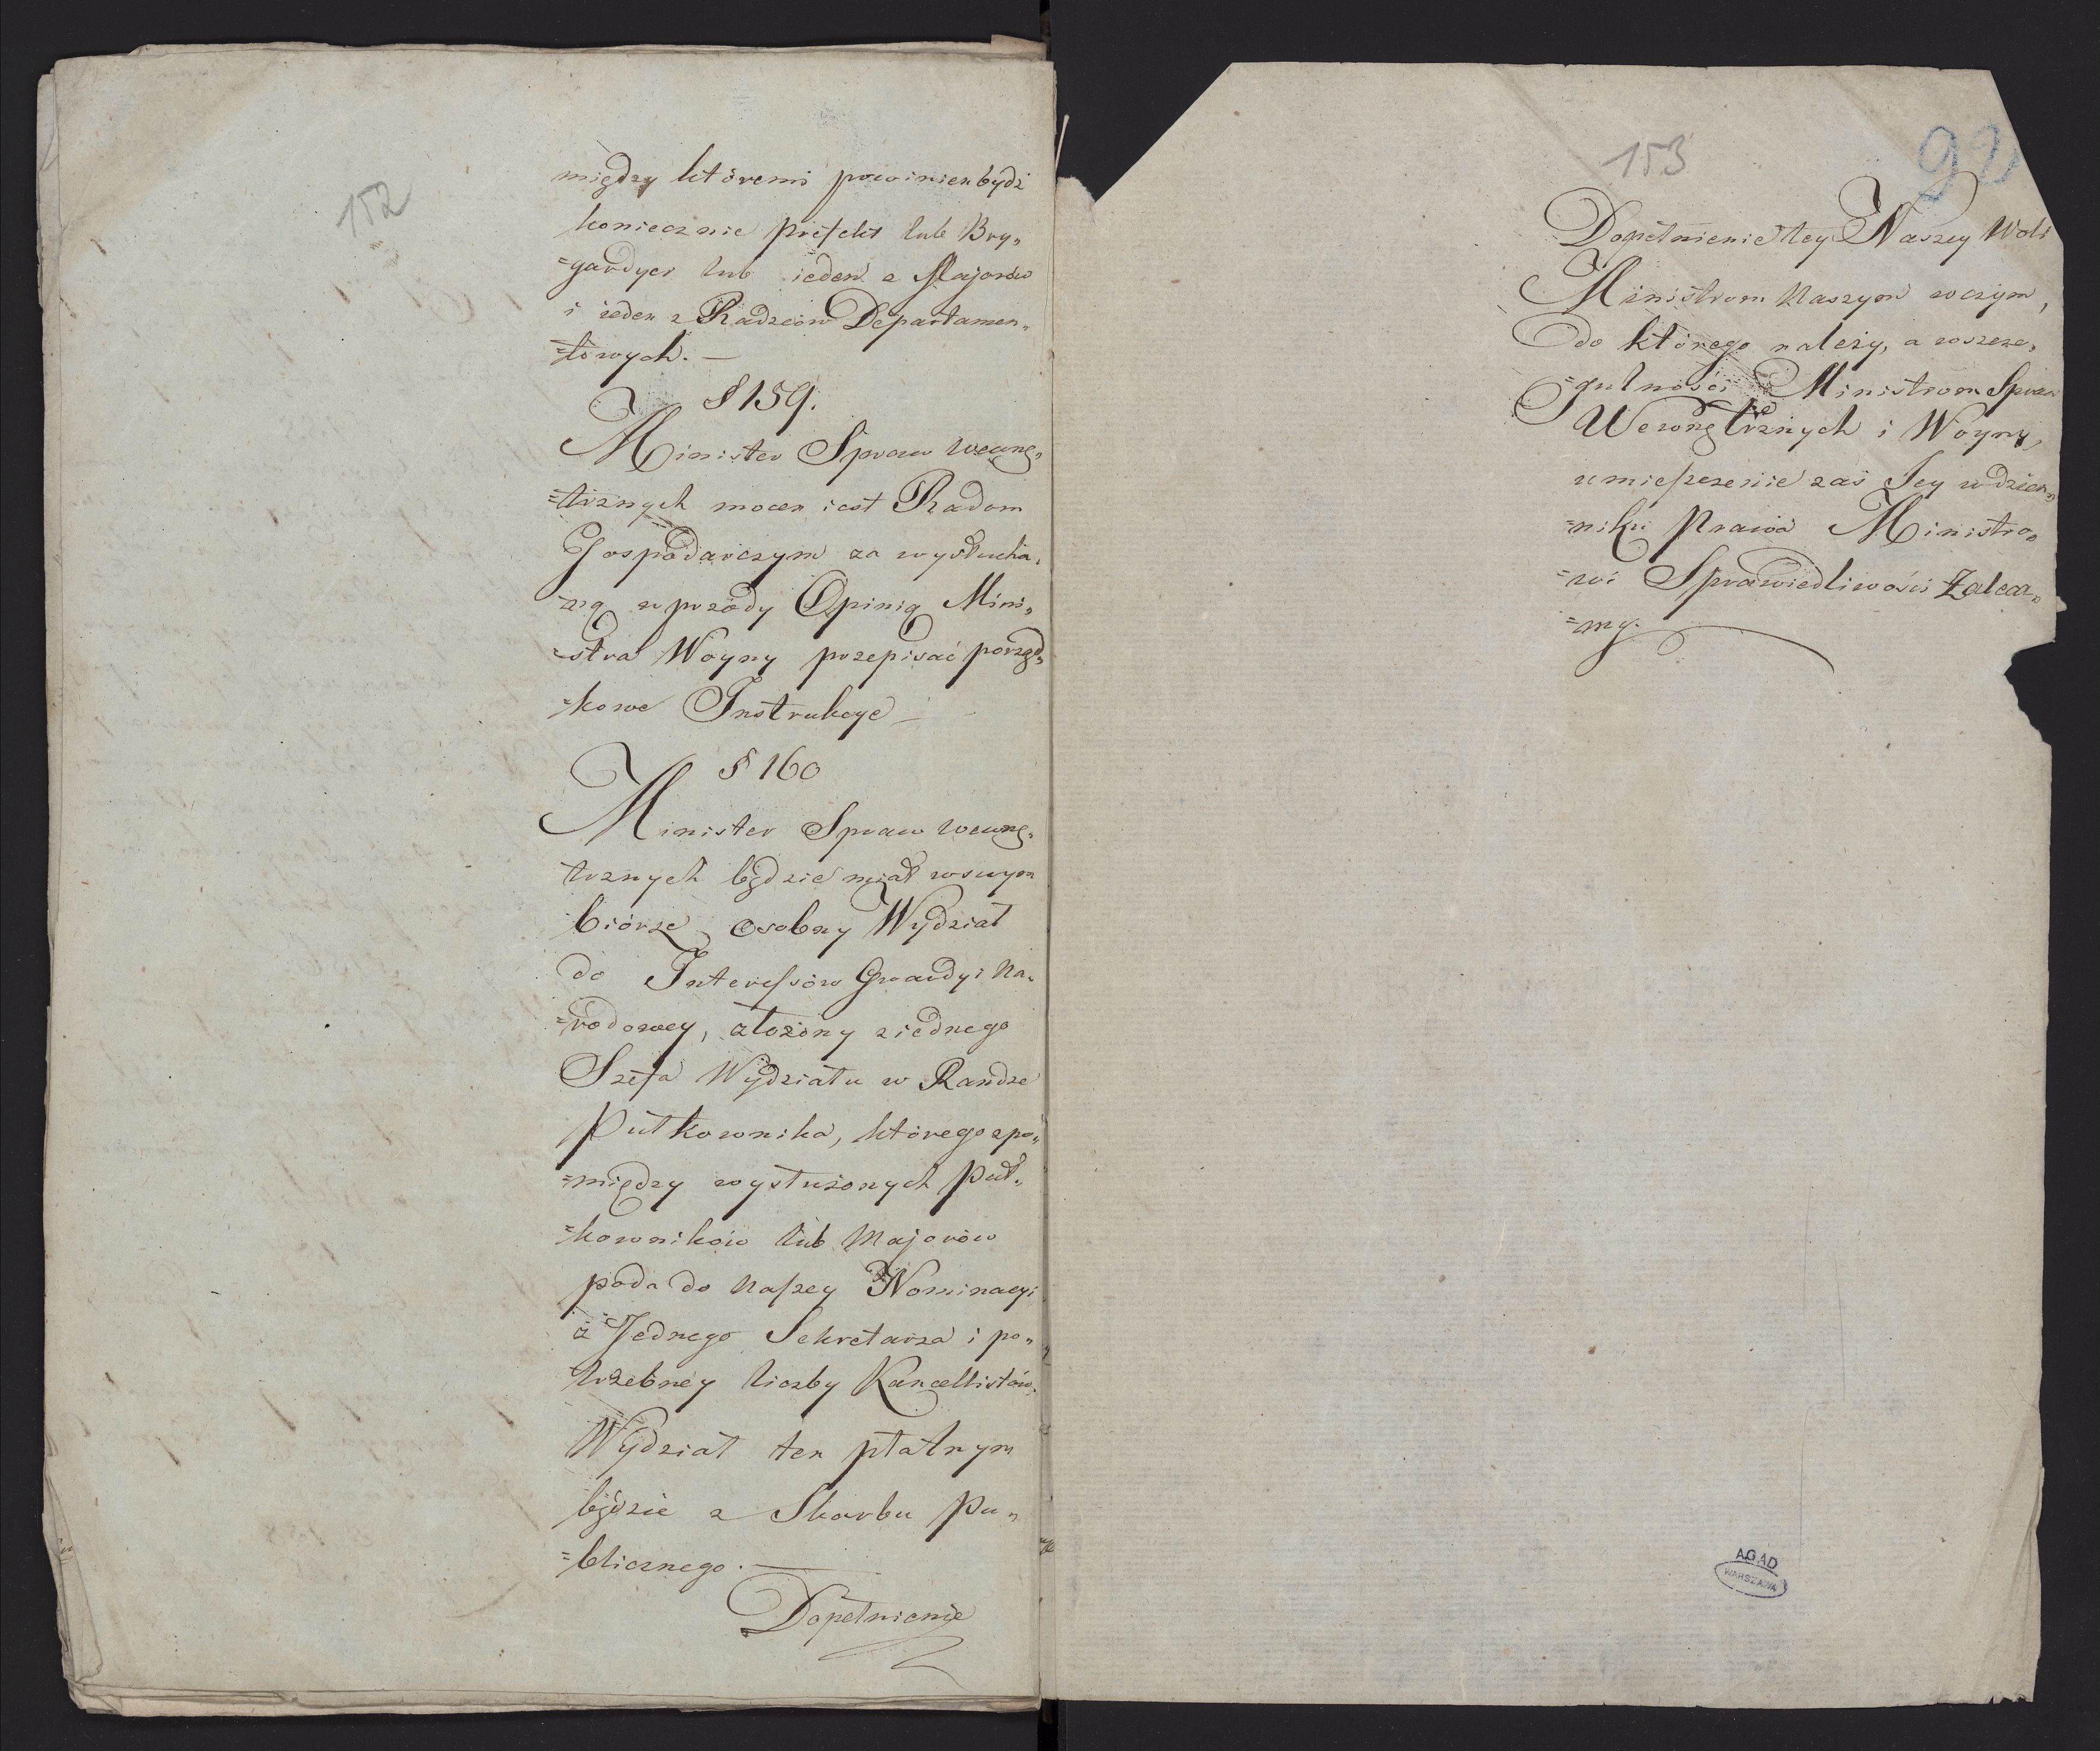 152
między któremi powinien bydź
koniecznie prefekt lub Bry„
=gardyer lub ieden z Majorów
i ieden z Radzców Departamen„
=towych. —
§ 159.
Minister Spraw Wewnę„
=trznych mocen iest Radom
Gospodarczym za wysłucha„
=ną wprzódy Opinią Mini„
=stra Woyny przepisać porząd„
=kowe Instrukcye —
§ 160
Minister Spraw wewnę„
trznych będzie miał wswym
biórze osobny Wydział
do Interessów Gwardyi Na„
=rodowey, złożony ziednego
Szefa Wydziału w Randze
Pułkownika, którego zpo„
=między wysłużonych Puł„
=kowników lub Majorów
poda do Naszey Nominacyi
z Jednego Sekretarza i po„
trzebney liczby Kancellistów.
Wydział ten płatnym
będzie z Skarbu Pu„
=blicznego. —
Dopełnienie
153
90
Dopełnienie tey Naszey Woli
Ministrom Naszym wczym,
do którego należy, a wszcze„
=gulności Ministrom Spraw
Wewnętrznych i Woyny,
umieszczenie zaś Jey wdzien„
=niku Prawa Ministro„
=wi Sprawiedliwości Zaleca„
=my.
AGAD
WARSZAWA